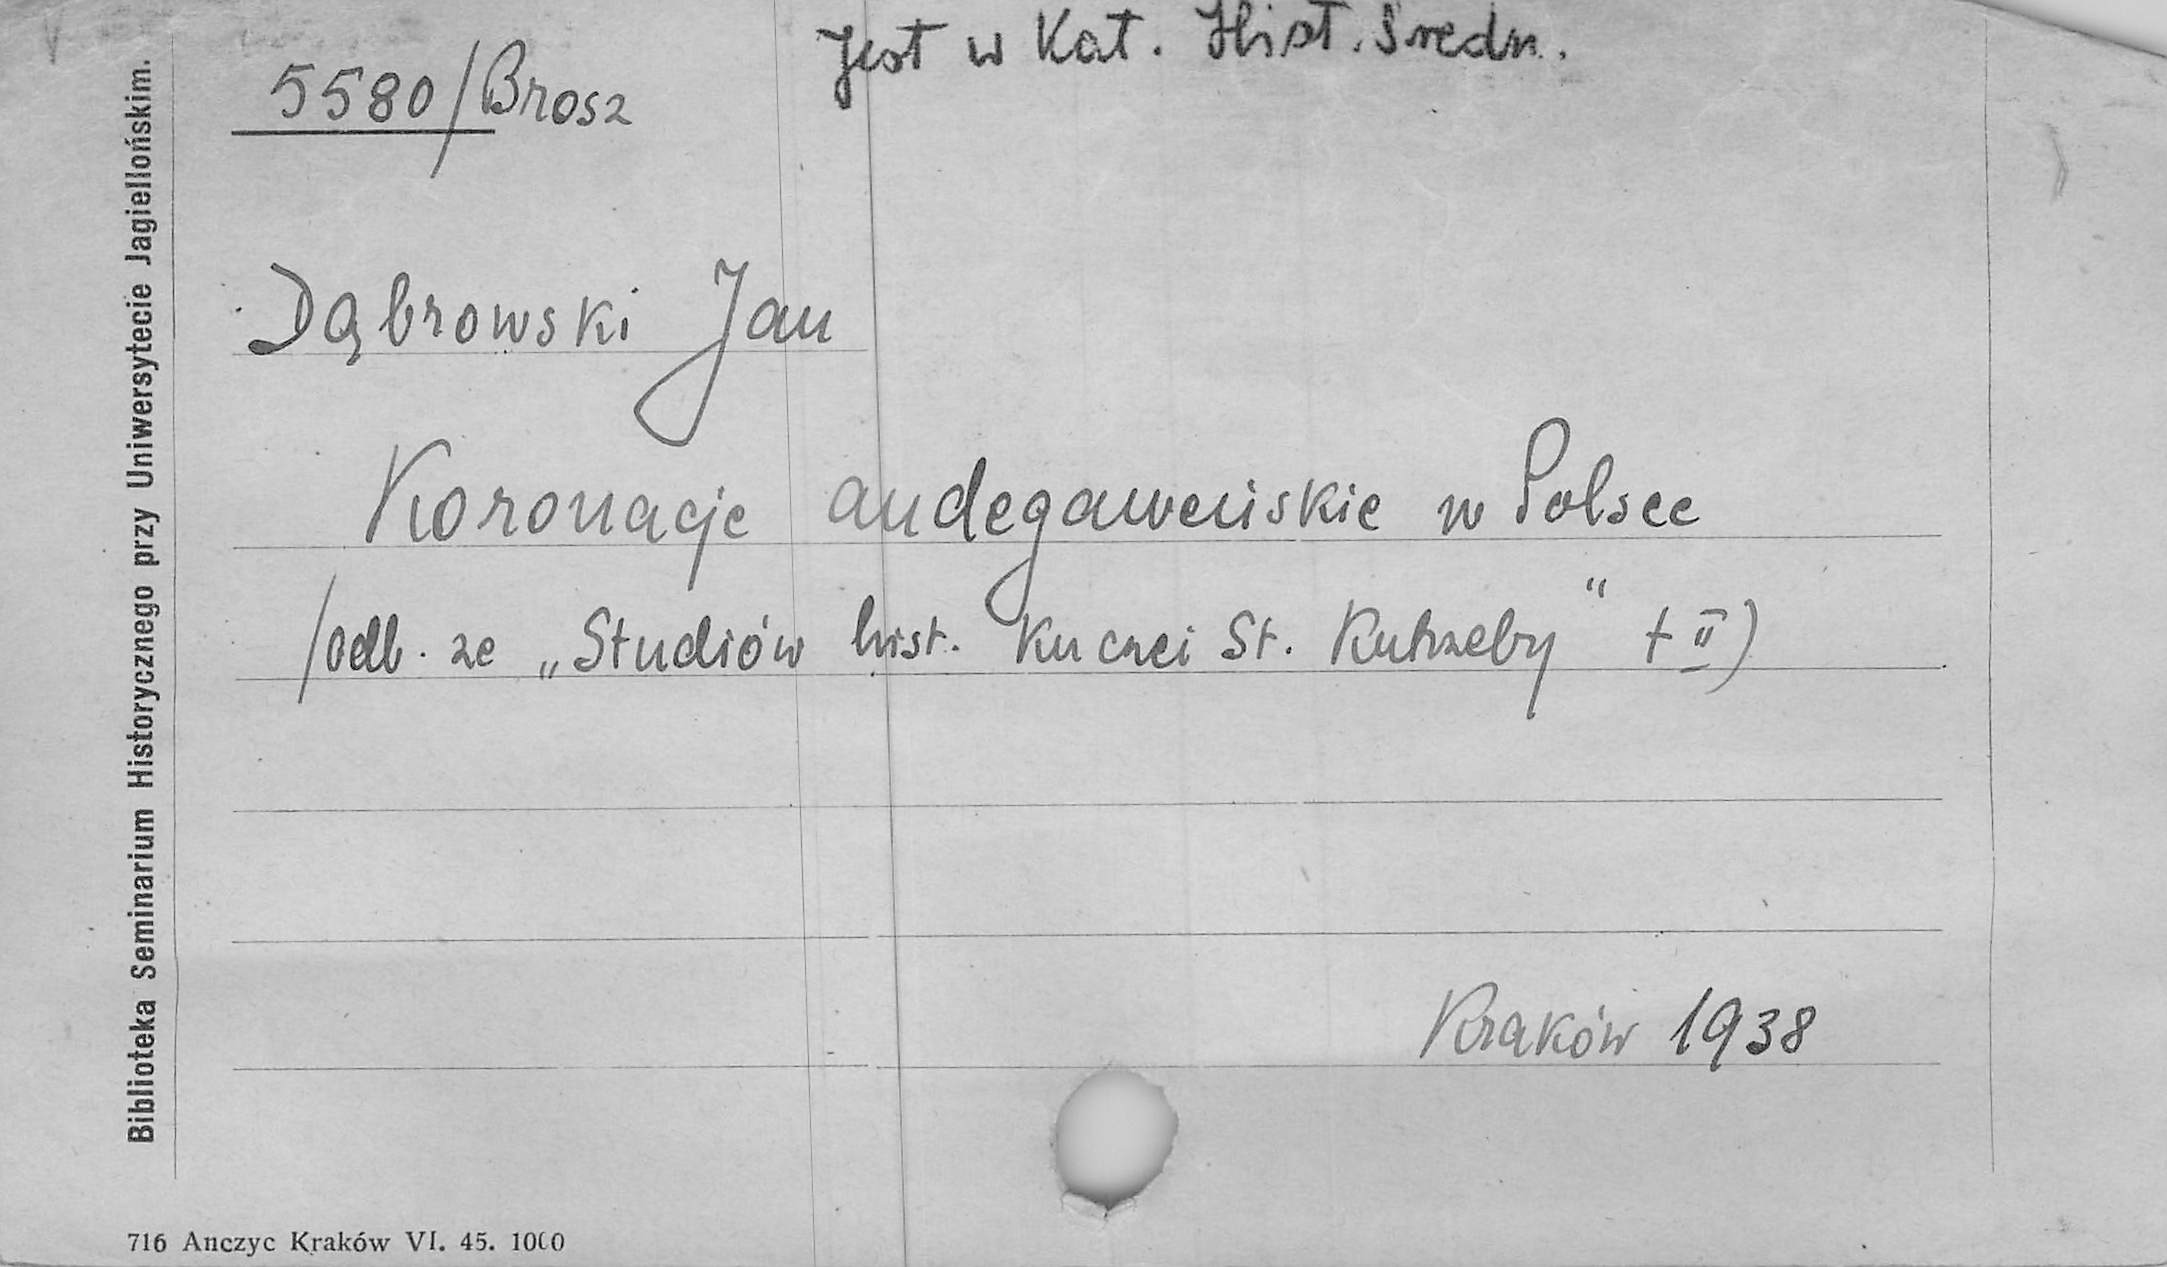 Jest w Kat. Hist. Średn.
5580/Brosz
Dąbrowski Jan
Koronacje andegaweńskie w Polsce
/odb. ze „Studiów hist. ku czci St. Kutrzeby" t II)
Kraków 1938
Biblioteka Seminarium Historycznego przy Uniwersytecie Jagiellońskim.
716 Anczyc Kraków VI. 45. 1000